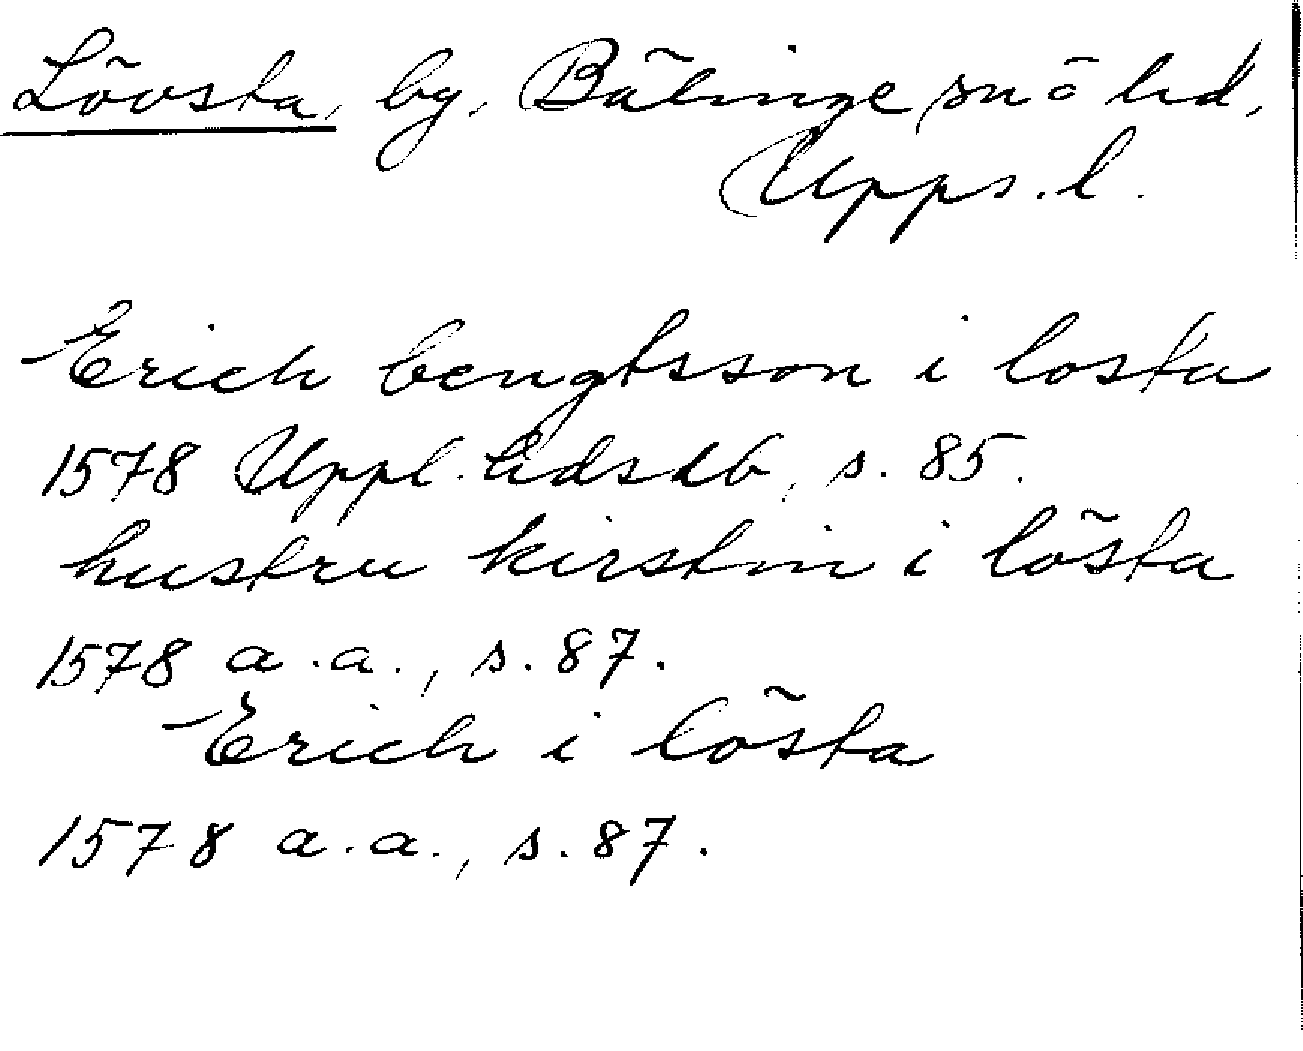 Lövsta, by, Bälinge sn o hd,
Upps. l.
Erich bengtsson i losta
1578 Uppl. hdsdb, s. 85.
hustru kirstin i lösta
1578 a.a., s. 87.
Erich i lösta
1578 a.a., s. 87.